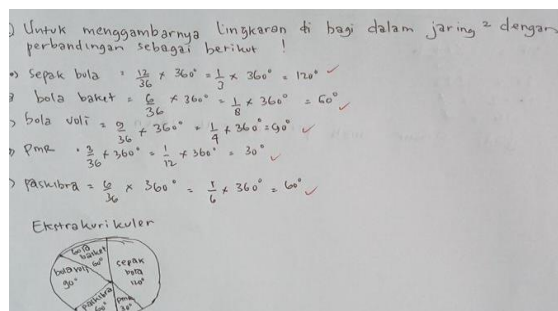 ) Untuk menggambarnya lingkaran di bagi dalam jaring² dengan
perbandingan sebagai berikut !
) sepak bola = 12/36 × 360° = 1/3 × 360° = 120° ✓
bola basket = 6/36 × 360° = 1/8 × 360° = 60° ✓
) bola voli = 9/36 × 360° = 1/4 × 360° = 90° ✓
) PMR = 3/36 × 360° = 1/12 × 360° = 30° ✓
) paskibra = 6/36 × 360° = 1/6 × 360° = 60° ✓
Ekstrakurikuler
bola
basket
60°
sepak
bola
120°
bola voli
90°
paskibra
60°
pmr
30°